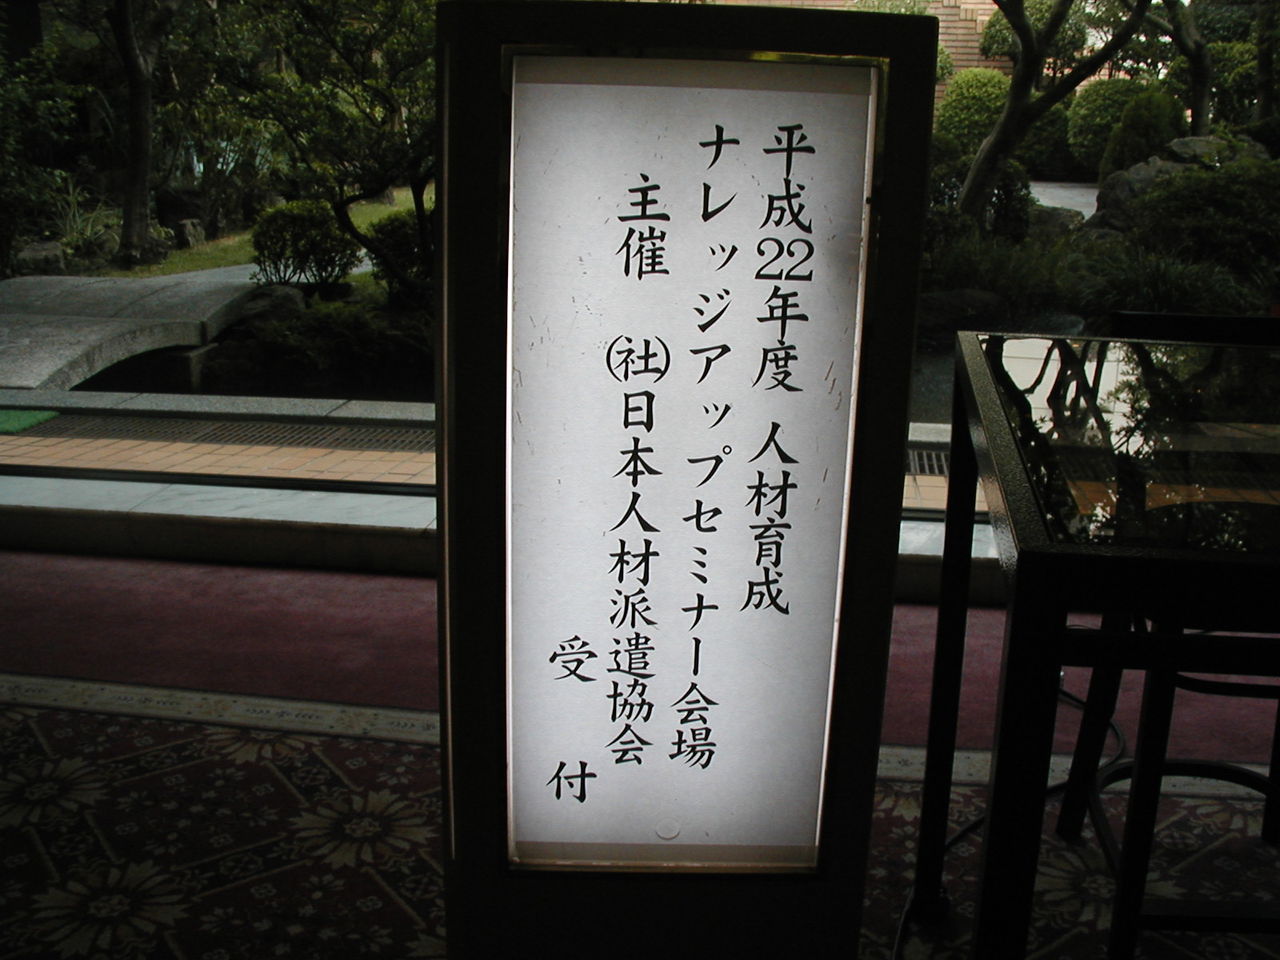 平成22年度 人材育成
ナレッジアップセミナー会場
主催 (社)日本人材派遣協会
受付